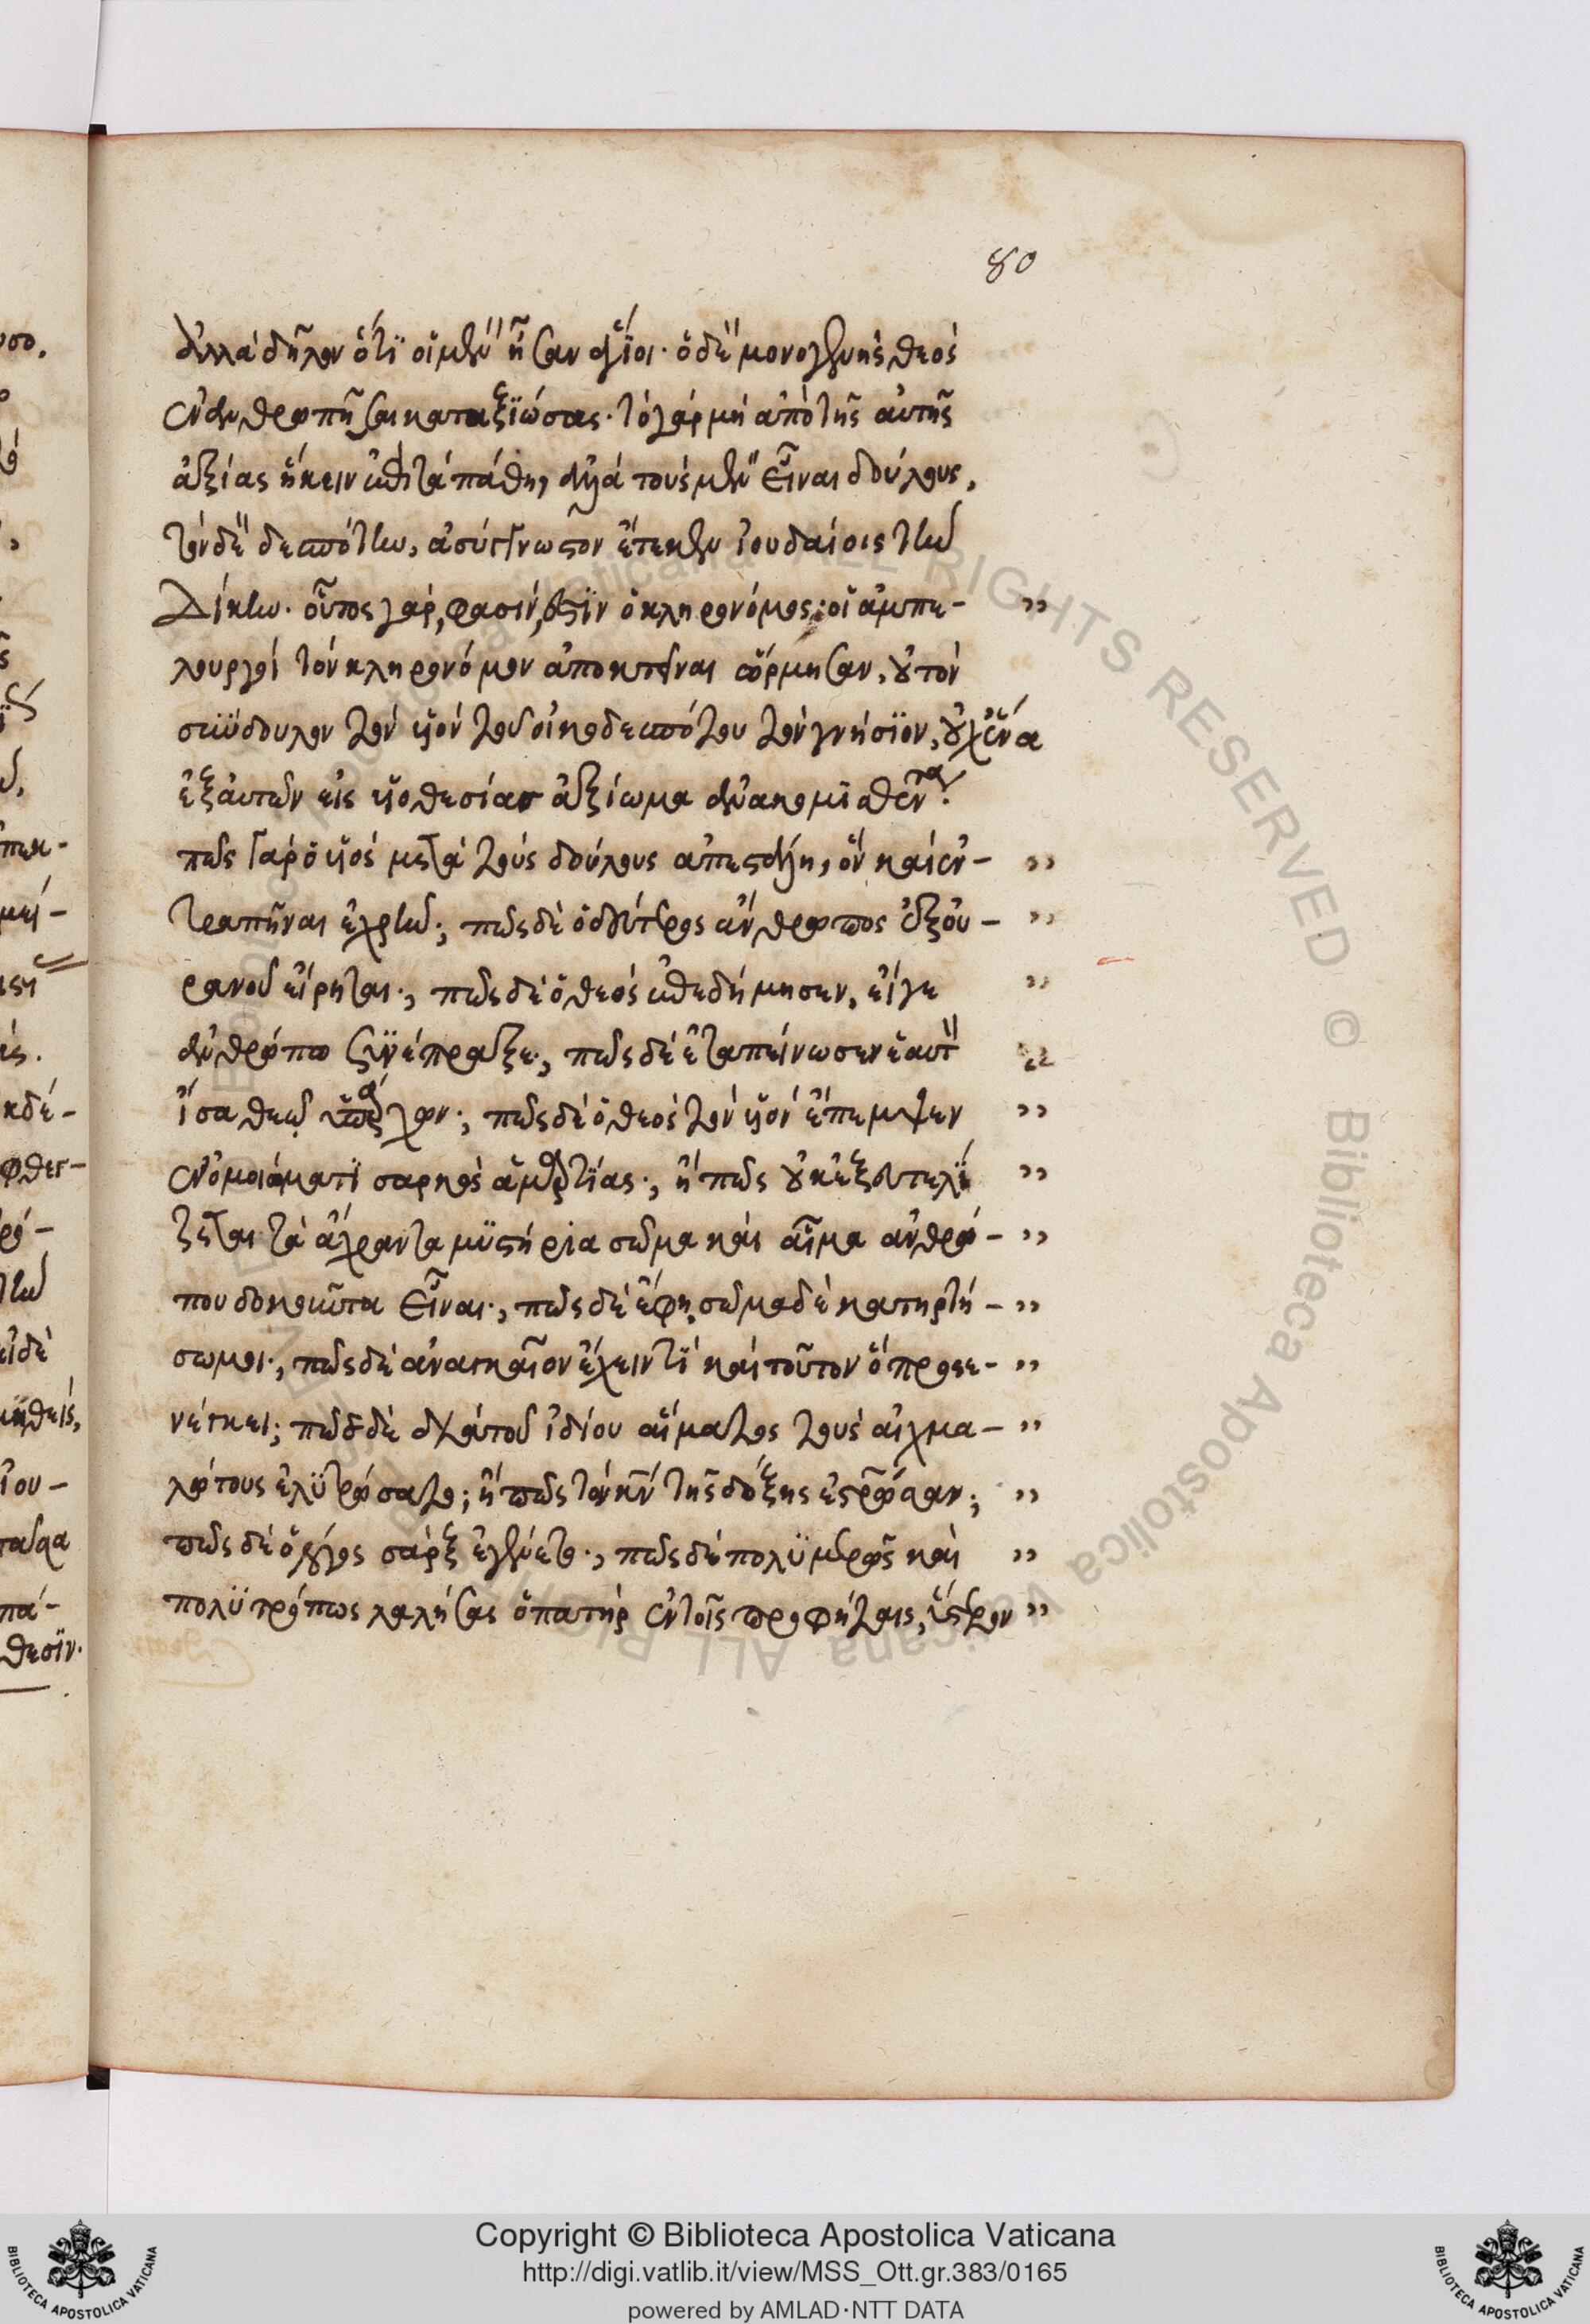 80
ἀλλὰ δῆλον ὅτι οἱ μὲν ἦσαν ἅγιοι· ὁ δὲ μονογενὴς θεὸς
ἐνανθρωπῆσαι καταξιώσας· τὸ γὰρ μὴ ἀπὸ τῆς αὐτῆς
ἀξίας ἥκειν ἐπὶ τὰ πάθη, ἀλλὰ τοὺς μὲν εἶναι δούλους,
τὸν δὲ δεσπότην, ἀσύγγνωστον ἔτεκεν ἰουδαίοις τὴν
δίκην· οὗτος γὰρ, φασὶν, ἐστὶν ὁ κληρονόμος; οἱ ἀμπε- ,,
λουργοὶ τὸν κληρονόμον ἀποκτεῖναι ὥρμησαν, οὐ τὸν
σύνδουλον τὸν υἱὸν τοῦ οἰκοδεσπότου τὸν γνήσιον, οὐχ ἕνα
ἐξ αὐτῶν εἰς υἱοθεσίας ἀξίωμα ἀνακομισθέντα.
πῶς γὰρ ὁ υἱὸς μετὰ τοὺς δούλους ἀπεστάλη, ὃν καὶ ἐν- ,,
τραπῆναι ἐχρῆν; πῶς δὲ ὁ δεύτερος ἄνθρωπος ἐξ οὐ- ,,
ρανοῦ εἴρηται; πῶς δὲ ὁ θεὸς ἐπεδήμησεν, εἴγε ,,
ἀνθρώπω συνέπραξε; πῶς δὲ ἐταπείνωσεν ἑαυτὸν ,,
ἴσα θεῷ ὑπάρχων; πῶς δὲ ὁ θεὸς τὸν υἱὸν ἔπεμψεν ,,
ἐν ὁμοιώματι σαρκὸς ἁμαρτίας; ἢ πῶς οὐκ ἐξευτελί ,,
ζεται τὰ ἄχραντα μυστήρια σῶμα καὶ αἷμα ἀνθρώ- ,,
που δοκοῦντα εἶναι; πῶς δὲ ἔφη, σῶμα δὲ κατηρτί- ,,
σω μοι; πῶς δὲ ἀναγκαῖον ἔχειν τὶ καὶ τοῦτον ὃ προσε- ,,
νέγκει; πῶς δὲ διὰ τοῦ ἰδίου αἵματος τοὺς αἰχμα- ,,
λώτους ἐλυτρώσατο; ἢ πῶς τὸν κν τῆς δόξης ἐστρωσαν; ,,
πῶς δὲ ὁ λόγος σὰρξ ἐγένετο; πῶς δὲ πολυμερῶς καὶ ,,
πολυτρόπως λαλήσας ὁ πατὴρ ἐν τοῖς προφήταις, ὕστερον ,,
Copyright © Biblioteca Apostolica Vaticana
http://digi.vatlib.it/view/MSS_Ott.gr.383/0165
powered by AMLAD·NTT DATA